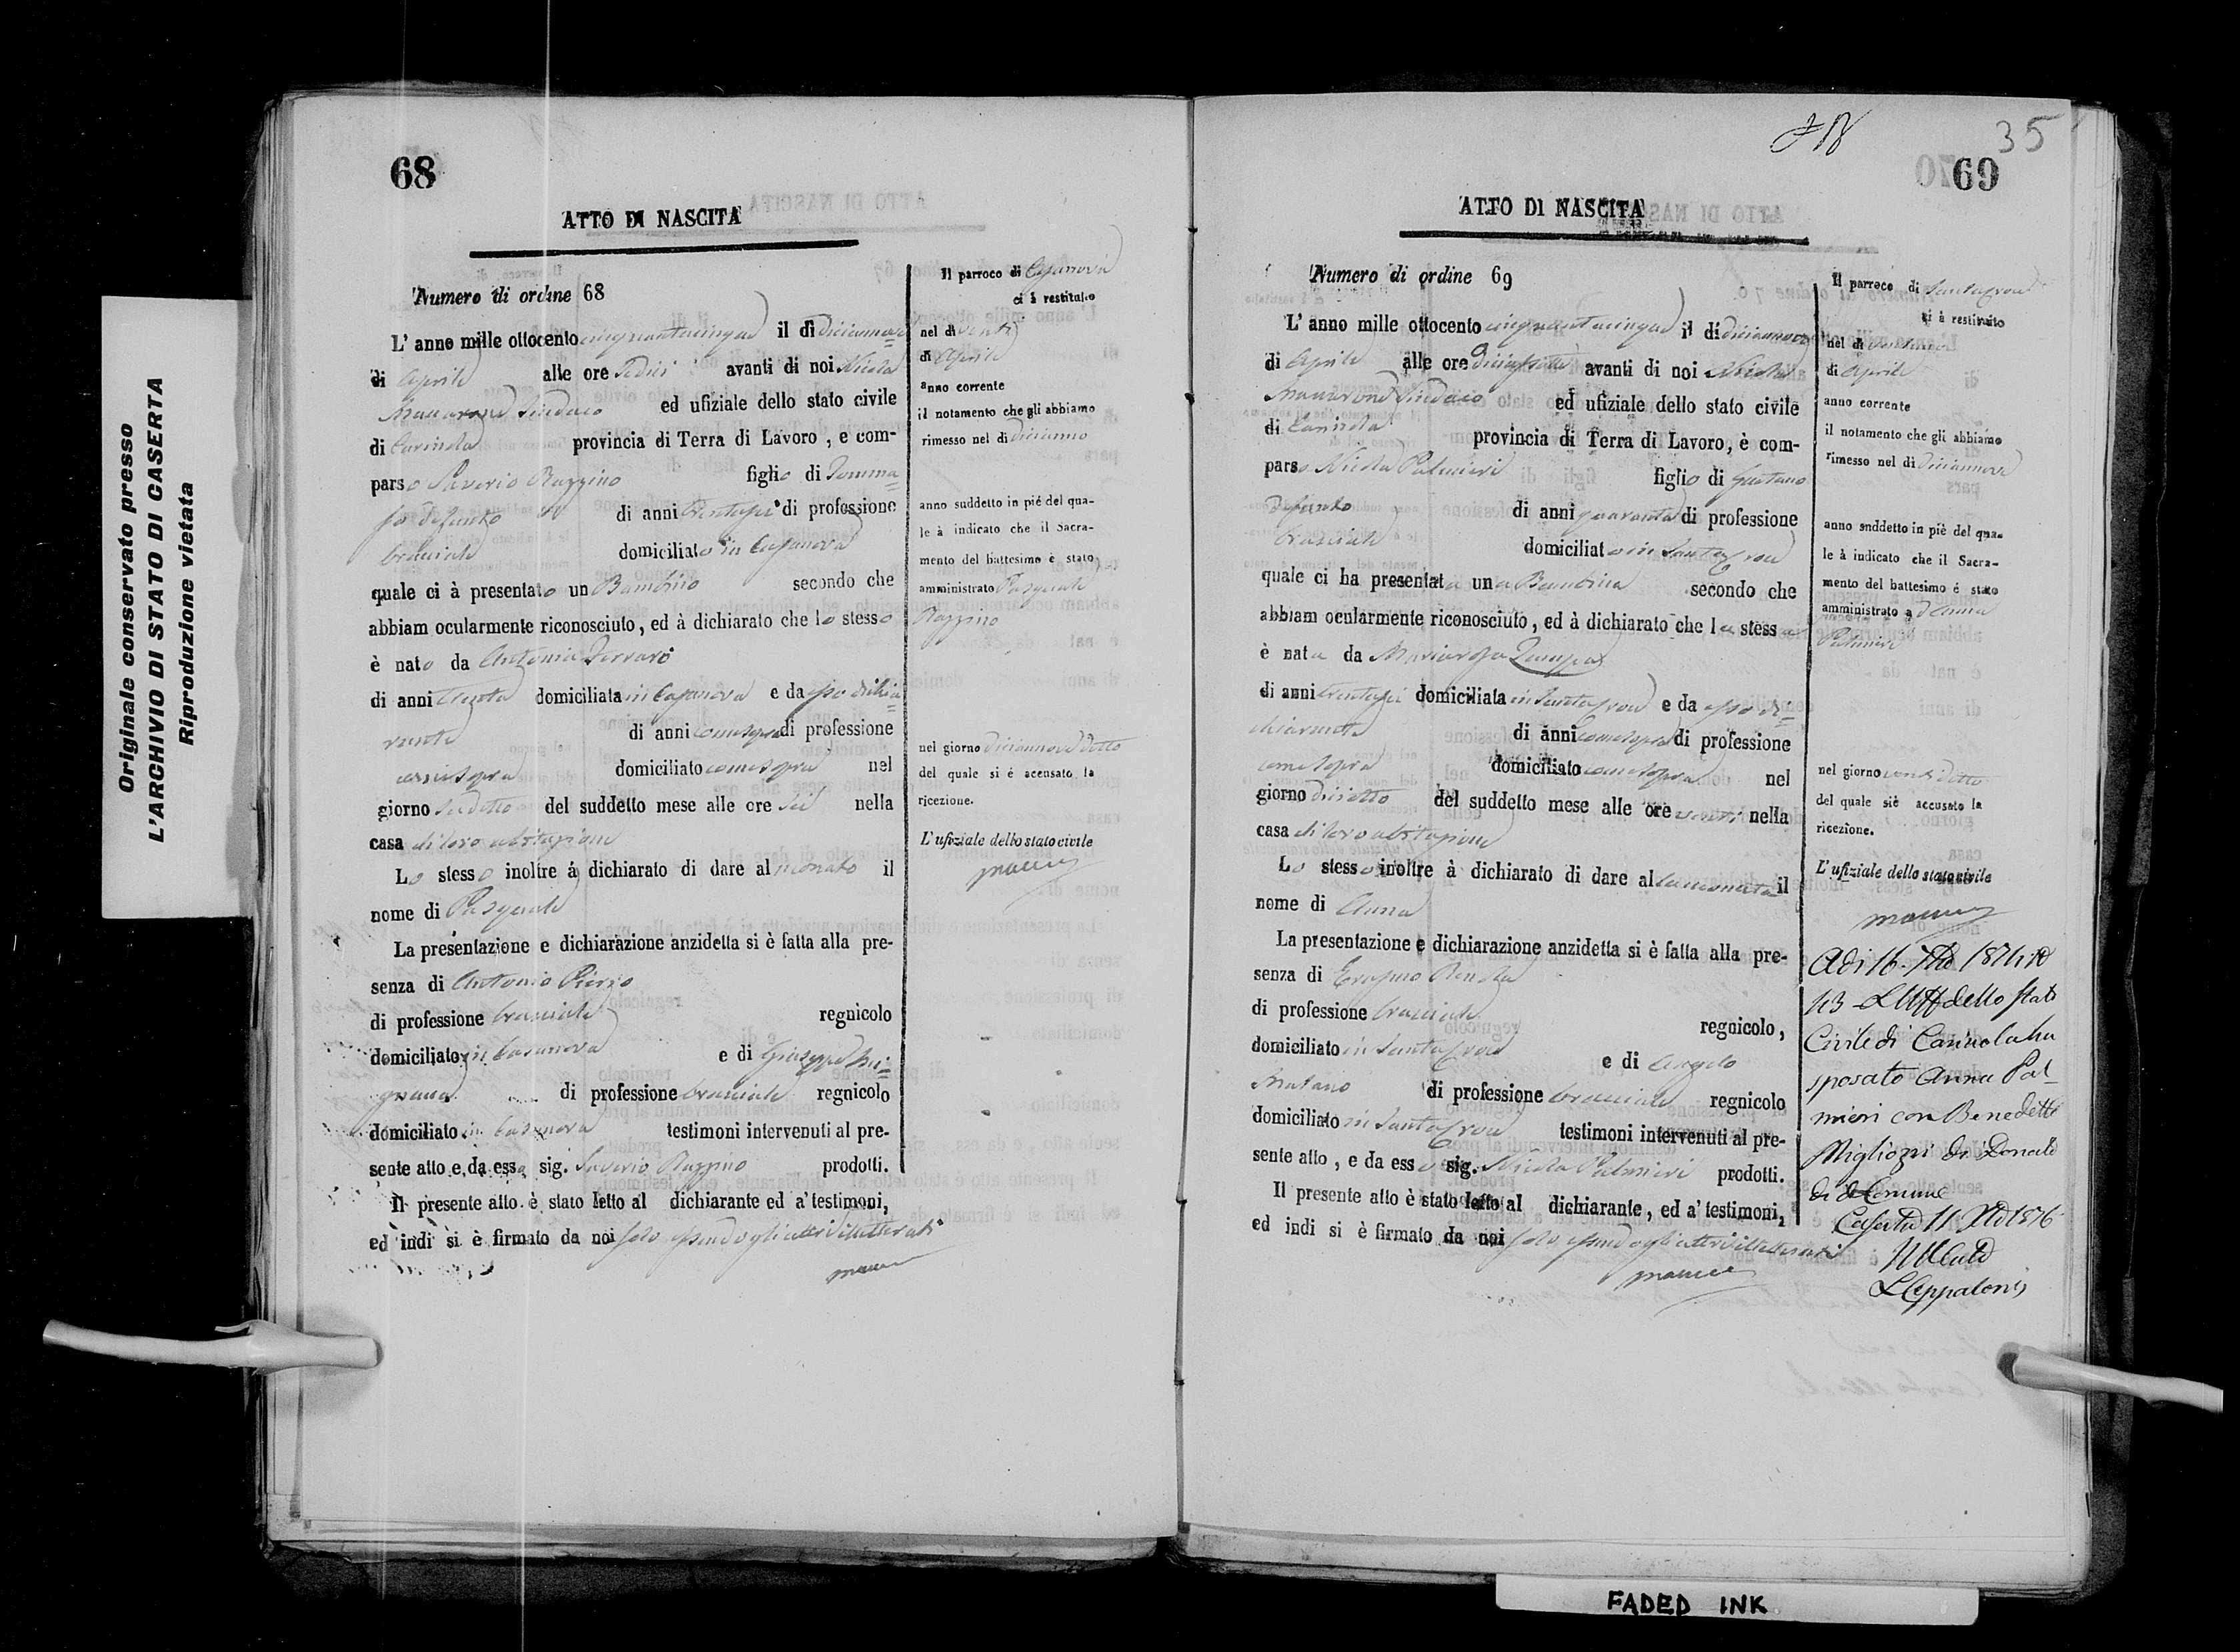 Originale conservato presso
L'ARCHIVIO DI STATO DI CASERTA
Riproduzione vietata
68
ATTO DI NASCITA
Numero di ordine 68
L' anno mille ottocento cinquantacinque il dì diciannove
di Aprile alle ore sedici avanti di noi Nicola
Mazzarone Sindaco ed ufiziale dello stato civile
di Carinola provincia di Terra di Lavoro , e com-
parso Saverio Razzino figlio di Tomma=
so defunto di anni trentasei di professione
bracciale domiciliato in Casanova
quale ci à presentato un Bambino secondo che
abbiam ocularmente riconosciuto, ed à dichiarato che lo stesso
è nato da Antonia Ferraro
di anni trenta domiciliata in Casanova e da esso dichia=
rante di anni come sopra di professione
come sopra domiciliato come sopra nel
giorno sudetto del suddetto mese alle ore sei nella
casa di loro abitazione
Lo stesso inoltre à dichiarato di dare al neonato il
nome di Pasquale
La presentazione e dichiarazione anzidetta si è fatta alla pre-
senza di Antonio
di professione bracciale regnicolo
domiciliato in Casanova e di Giuseppe
di professione bracciale regnicolo
domiciliato in Casanova testimoni intervenuti al pre-
sente atto e, da esso sig. Saverio Razzino prodotti.
Il presente atto è stato letto al dichiarante ed a' testimoni,
ed indi si è firmato da noi solo essendo gli altri illetterati
Il parroco di Casanova
ci à restituito
nel dì venti
di Aprile
anno corrente
il notamento che gli abbiamo
rimesso nel dì dicianno
anno suddetto in piè del qua-
le à indicato che il Sacra-
mento del battesimo è stato
amministrato Pasquale
Razzino
nel giorno diciannove detto
del quale si é acensato la
ricezione.
L'ufiziale dello stato civile
35
69
ATTO DI NASCITA
Numero di ordine 69
L' anno mille ottocento cinquantacinque il dì diciannove
di Aprile alle ore diciassette avanti di noi Nicola
Mazzarone Sindaco ed ufiziale dello stato civile
di Carinola provincia di Terra di Lavoro, è com-
parso Nicola Palmieri figlio di Gaetano
defunto di anni quaranta di professione
bracciale domiciliato in Santa Croce
quale ci ha presentata una Bambina secondo che
abbiam ocularmente riconosciuto, ed à dichiarato che la stessa
è nata da Mariarosa Zampa
di anni trentasei domiciliata in Santa Croce e da esso di=
chiarante di anni come sopra di professione
come sopra domiciliato come sopra nel
giorno diciotto del suddetto mese alle ore venti nella
casa di loro abitazione
Lo stesso inoltre à dichiarato di dare alla neonata il
nome di Anna
La presentazione e dichiarazione anzidetta si è fatta alla pre-
senza di Erasmo
di professione bracciale regnicolo,
domiciliato in Santa Croce e di Angelo
di professione bracciale regnicolo
domiciliato in Santa Croce testimoni intervenuti al pre-
sente atto , e da esso sig. Nicola Palmieri prodotti.
Il presente atto è stato letto al dichiarante, ed a' testimoni,
ed indi si è firmato da noi solo essendo gli altri illetterati
Il parroco di Santa Croce
ci à restituito
nel dì
di Aprile
anno corrente
il notamento che gli abbiamo
rimesso nel dì diciannove
anno suddetto in piè del qua-
le à indicato che il Sacra-
mento del battesimo é stato
amministrato a d Anna
Palmieri
nel giorno venti detto
del quale siè accusato la
ricezione.
L'ufiziale dello stato civile
Adi 16
43 - L'Uff dello Stato
Civile di Carinola ha
sposato Anna Pal-
mieri con Benedetto
Migliozzi di Donato
di d Comune
Caserta 11 1876
FADED INK